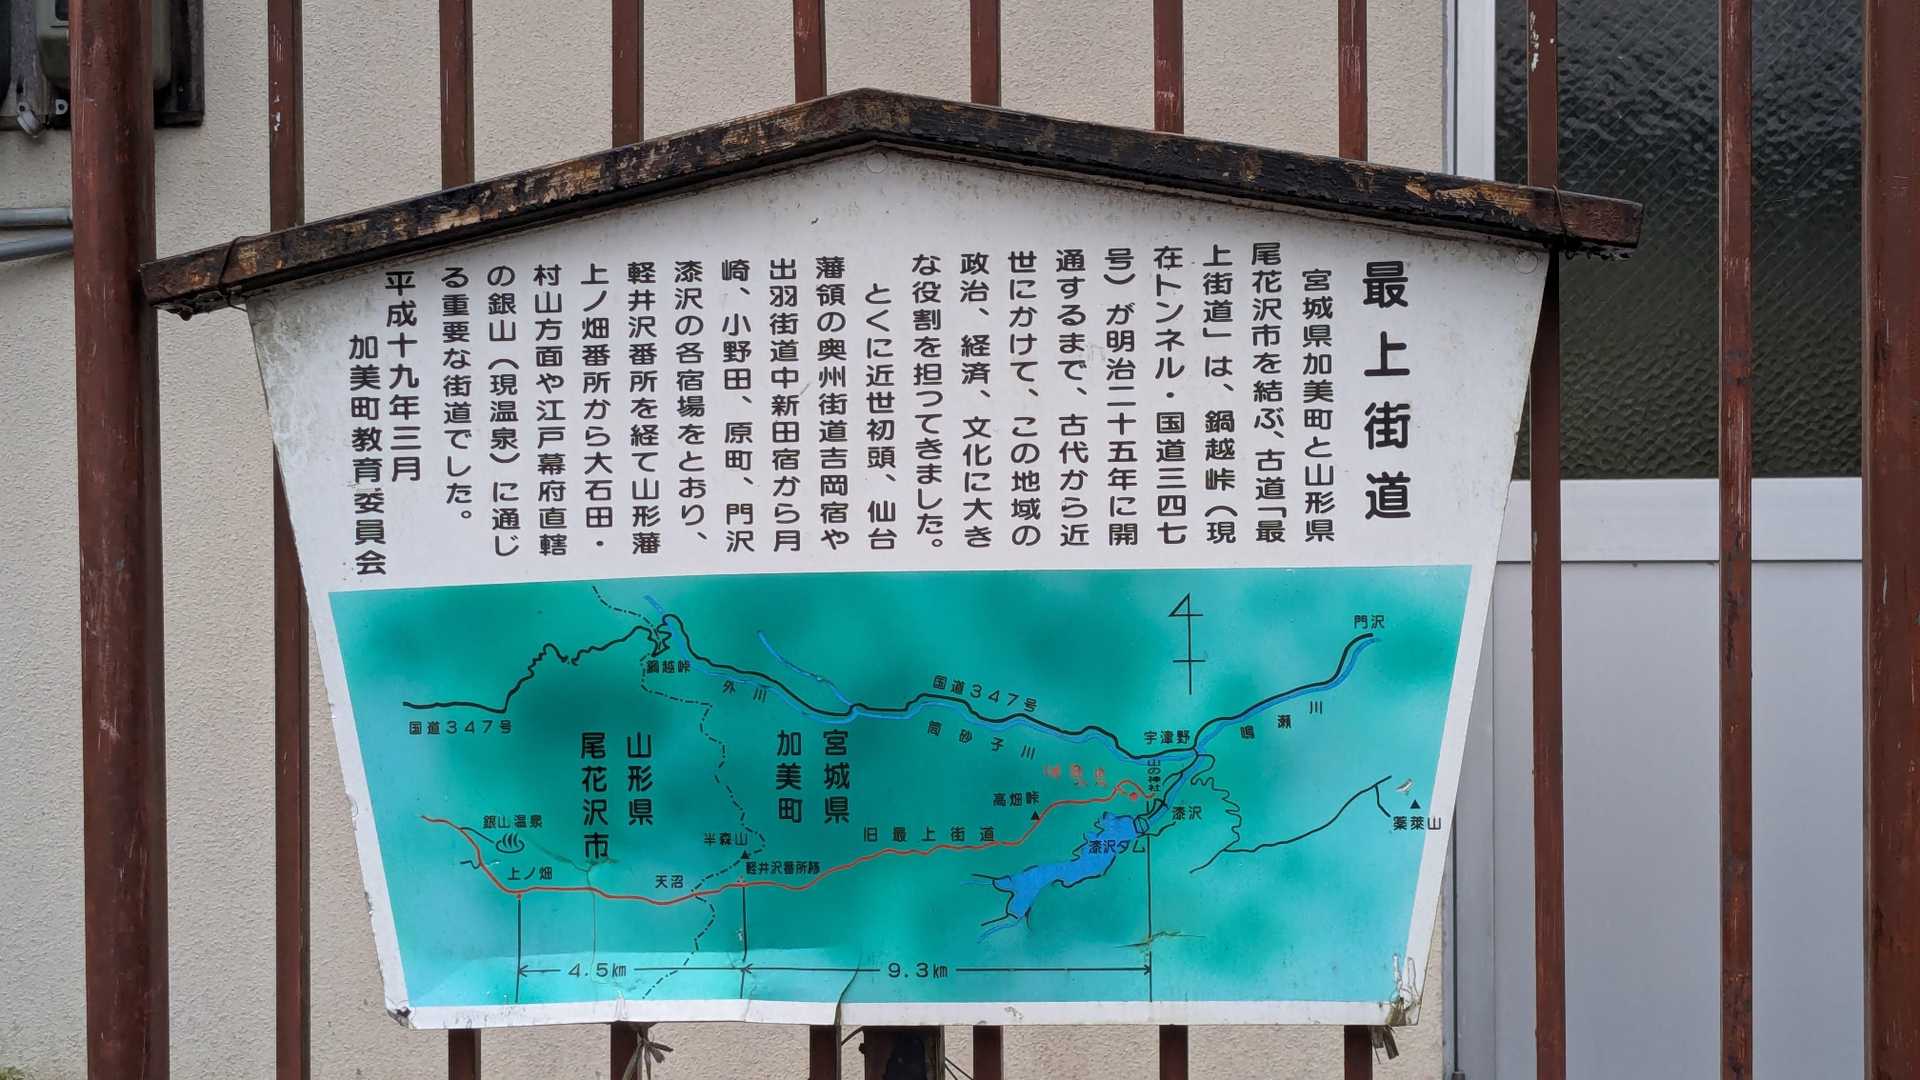 最上街道
宮城県加美町と山形県
尾花沢市を結ぶ、古道「最
上街道」は、鍋越峠（現
在トンネル・国道三四七
号）が明治二十五年に開
通するまで、古代から近
世にかけて、この地域の
政治、経済、文化に大き
な役割を担ってきました。
とくに近世初頭、仙台
藩領の奥州街道吉岡宿や
出羽街道中新田宿から月
崎、小野田、原町、門沢
漆沢の各宿場をとおり、
軽井沢番所を経て山形藩
上ノ畑番所から大石田・
村山方面や江戸幕府直轄
の銀山（現温泉）に通じ
る重要な街道でした。
平成十九年三月
加美町教育委員会
門沢
鍋越峠
外川
国道347号
国道347号
筒砂子川
鳴瀬川
宇津野
山の神社
宮城県
加美町
山形県
尾花沢市
高畑峠
漆沢
薬萊山
銀山温泉
半森山
旧最上街道
漆沢ダム
上ノ畑
天沼
軽井沢番所跡
4.5km
9.3km